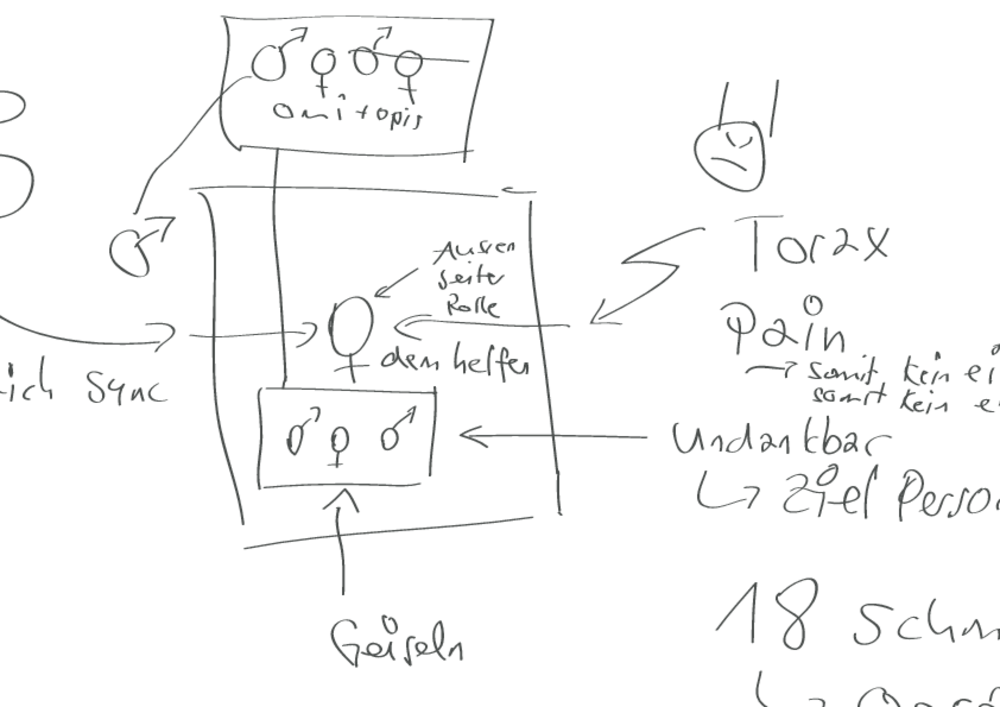 omitopis
Aussen
seiter
Rolle
dem helfer
ich Sync
Geiseln
Torax
Pain
→ somit kein ei
somit kein e
Undankbar
↳ Ziel Perso
18 Schm